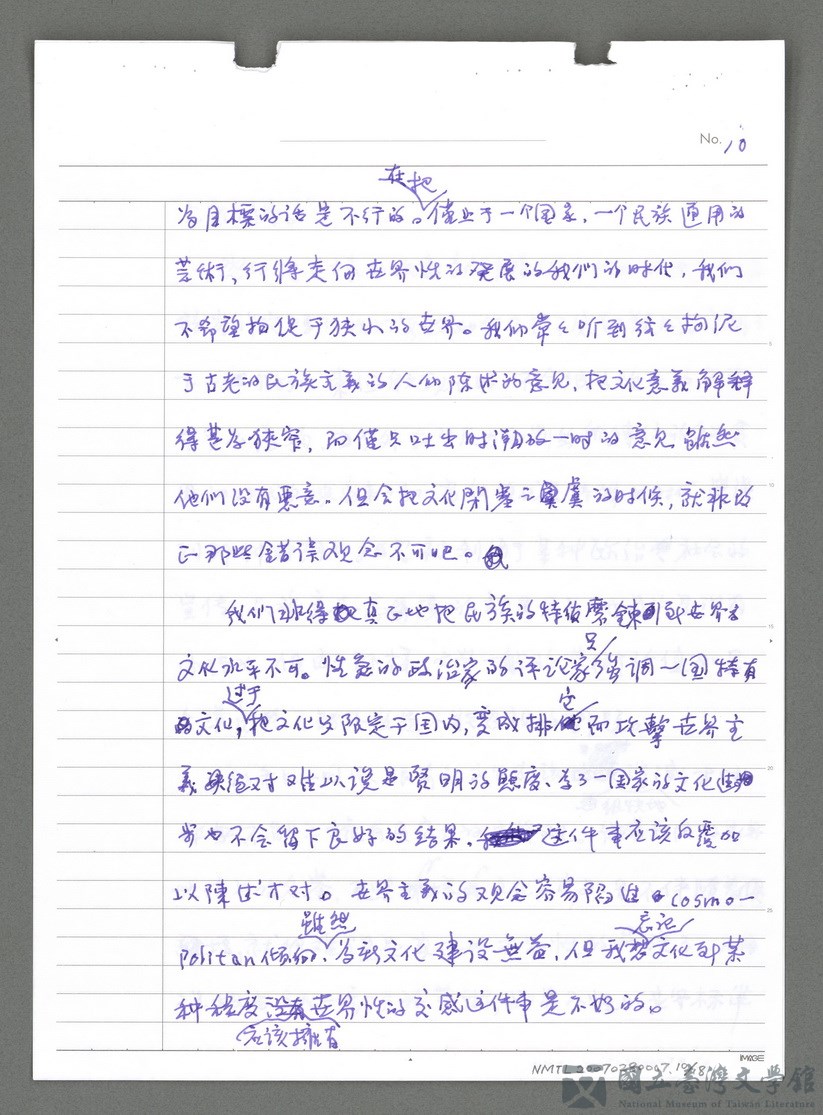 No. 10
在把
为目標的话是不行的。僅止于一个国家,一个民族通用的
芸術,行將走向世界性的発展的我们的时代,我们
不希望拘促于狭小的世界。我们常々听到终々拘泥
于古老的民族主義的人们陈述的意见,把文化意義解释
得甚为狭窄,而僅只吐出时潮的一时的意见虽然
他们没有悪意。但会把文化閉塞之虞的时候,就非改
正那些錯误观念不可吧。
我们非得真正地把民族的特质磨鍊到世界
文化水平不可。性急的政治家的评论家强调一国特有
只
的文化,把文化只限定于国内,变成排他而攻擊世界主
过于
它
義絕对难以说是賢明的態度、為了一国家的文化進
步也不会留下良好的結果。这件事应该反覆加
以陳述才对。世界主義的观念容易陷進cosmo-
politan倾向、为新文化建设無益,但我想文化到某
虽然
忘记
种程度没有世界性的交感这件事是不好的。
应该擁有
IMAGE
NMTL20070280067.10/68
國立臺灣文學館
National Museum of Taiwan Literature